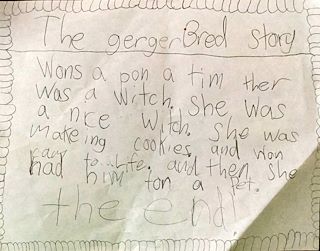 The gergerBred story
Wons a pon a tim ther
was a witch. She was
a nice witch. She was
making cookies and won
cam to life. and then she
had him for a Pet.
the end!